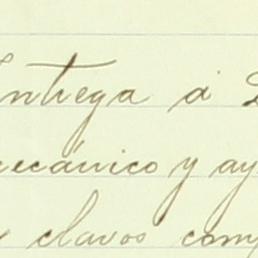 Entrega á
mecánico y ay
clavos comp